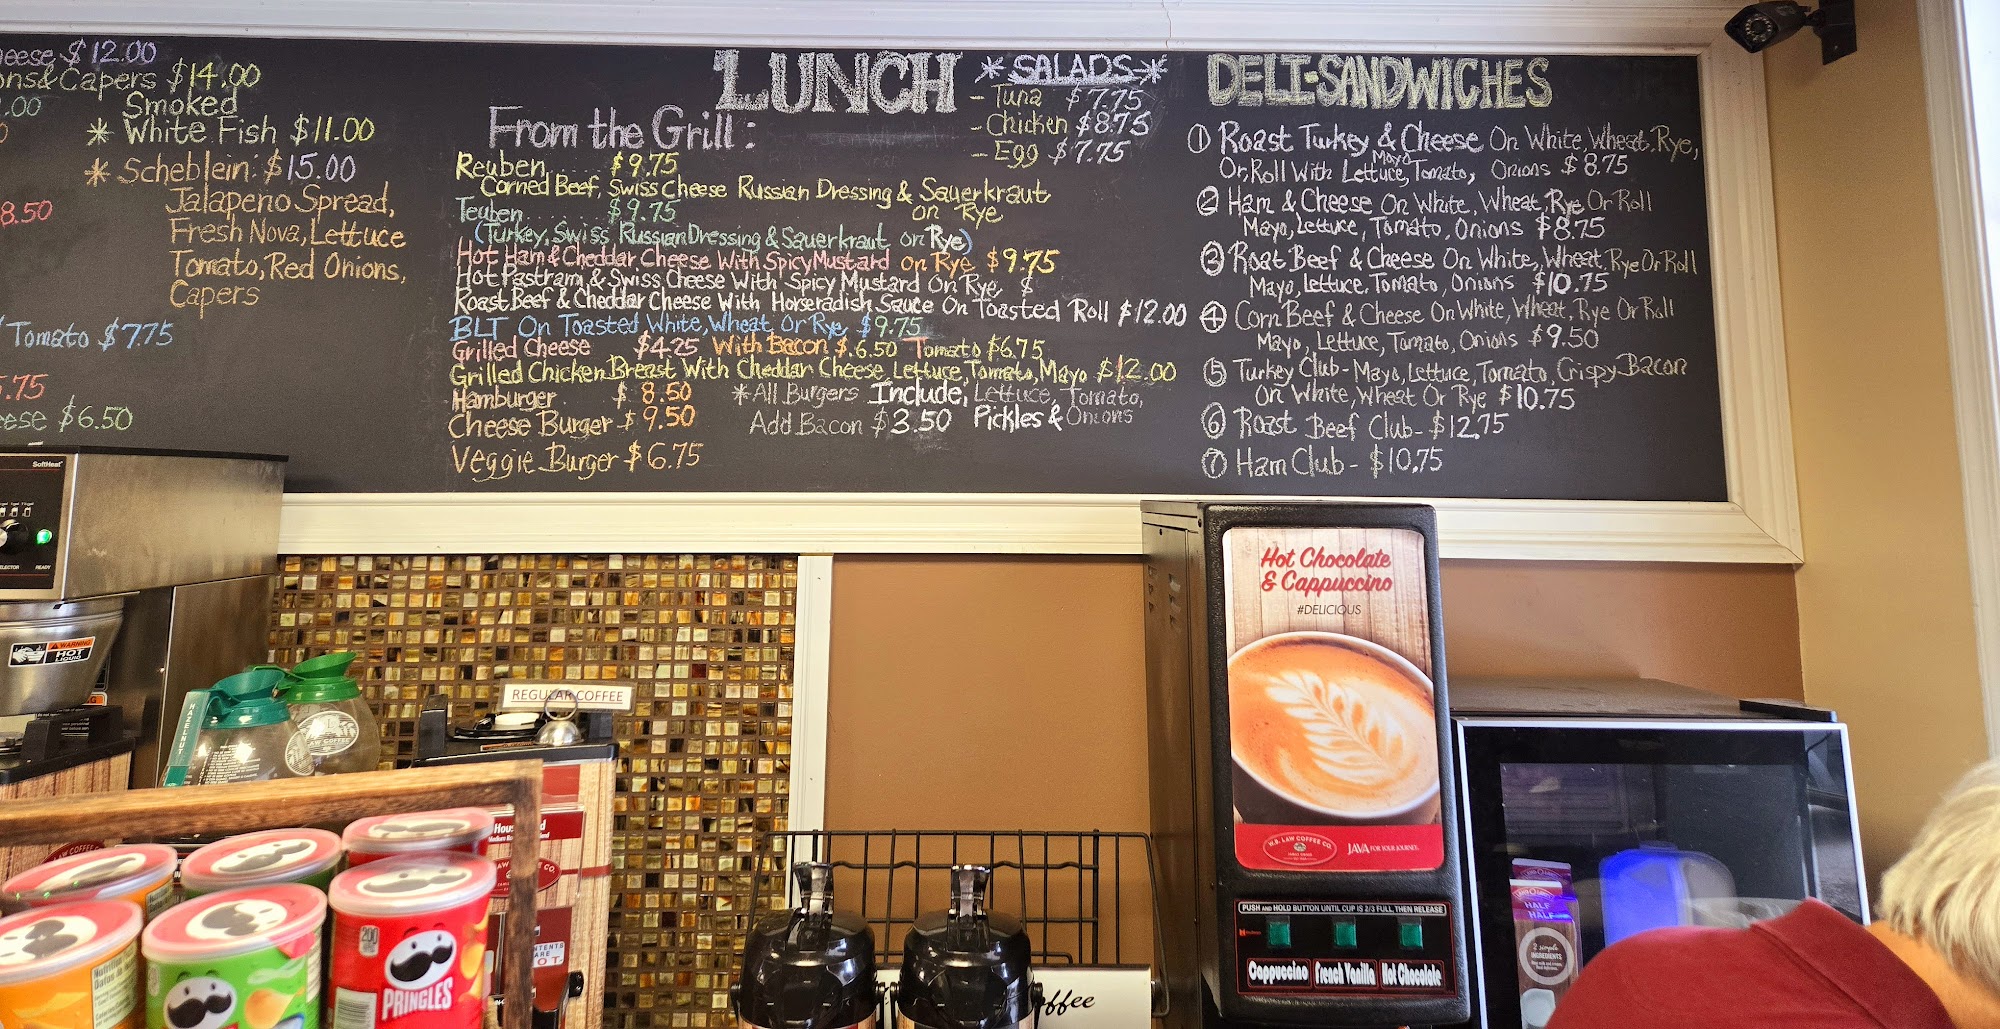 $12.00
&Capers $14.00
.00
Smoked
* White Fish $11.00
* Scheblein: $15.00
Jalapeno Spread,
8.50
Fresh Nova, Lettuce
Tomato, Red Onions,
Capers
Tomato $7.75
.75
$6.50
LUNCH
From the Grill:
Reuben...... $9.75
Corned Beef, Swiss Cheese Russian Dressing & Sauerkraut
on Rye
Teuben....... $9.75
(Turkey, Swiss, Russian Dressing & Sauerkraut on Rye)
Hot Ham & Cheddar Cheese With Spicy Mustard on Rye $9.75
Hot Pastrami & Swiss Cheese With Spicy Mustard On Rye, $
Roast Beef & Cheddar Cheese With Horseradish Sauce On Toasted Roll $12.00
BLT On Toasted White, Wheat, Or Rye $9.75
Grilled Cheese $4.25 With Bacon $.6.50 Tomato $6.75
Grilled Chicken Breast With Cheddar Cheese, Lettuce, Tomato, Mayo $12.00
Hamburger $8.50
Cheese Burger $9.50
Veggie Burger $6.75
*All Burgers Include, Lettuce, Tomato,
Pickles & Onions
Add Bacon $3.50
*SALADS*
- Tuna $7.75
- Chicken $8.75
- Egg $7.75
DELI-SANDWICHES
1 Roast Turkey & Cheese On White, Wheat, Rye,
Or, Roll With Lettuce, Mayo, Tomato, Onions $8.75
2 Ham & Cheese On White, Wheat, Rye Or Roll
Mayo, Lettuce, Tomato, Onions $8.75
3 Roat Beef & Cheese On White, Wheat, Rye Or Roll
Mayo, Lettuce, Tomato, Onions $10.75
4 Corn Beef & Cheese On White, Wheat, Rye Or Roll
Mayo, Lettuce, Tomato, Onions $9.50
5 Turkey Club - Mayo, Lettuce, Tomato, Crispy Bacon
On White, Wheat Or Rye $10.75
6 Roast Beef Club - $12.75
7 Ham Club - $10.75
SoftHeat
READY
WARNING
HOT
LIQUID
HAZELNUT
REGULAR COFFEE
Hot Chocolate
& Cappuccino
#DELICIOUS
W.B. LAW COFFEE CO.
JAVA FOR YOUR JOURNEY.
PUSH AND HOLD BUTTON UNTIL CUP IS 2/3 FULL, THEN RELEASE
Cappuccino
French Vanilla
Hot Chocolate
HALF
HALF
2 simple
INGREDIENTS
PRINGLES